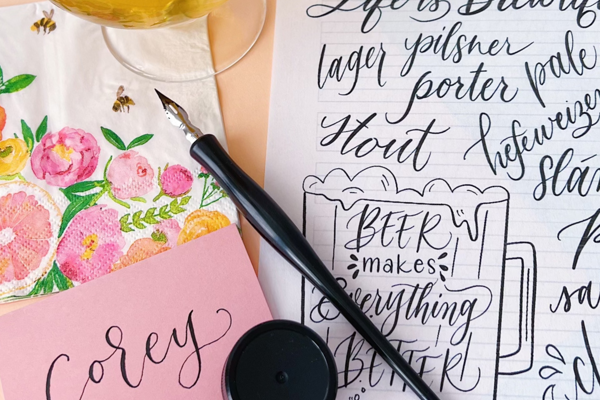 Life is Brewtiful
lager pilsner
porter pale
Stout hefeweizen
BEER
makes
Everything
BETTER!
Corey